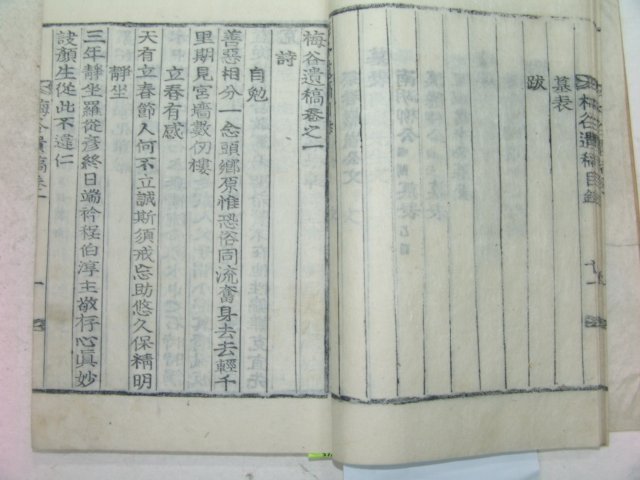 墓表
跋
梅谷遺稿卷之一
詩
自勉
善惡相分一念頭鄉原惟恐俗同流奮身去去輕千
里期見宮墻數仞樓
立春有感
天有立春節人何不立誠斯須戒忘助悠久保精明
靜坐
三年靜坐羅從彥終日端衿程伯淳主敬存心眞妙
訣顏生從此不違仁
梅谷遺稿卷一